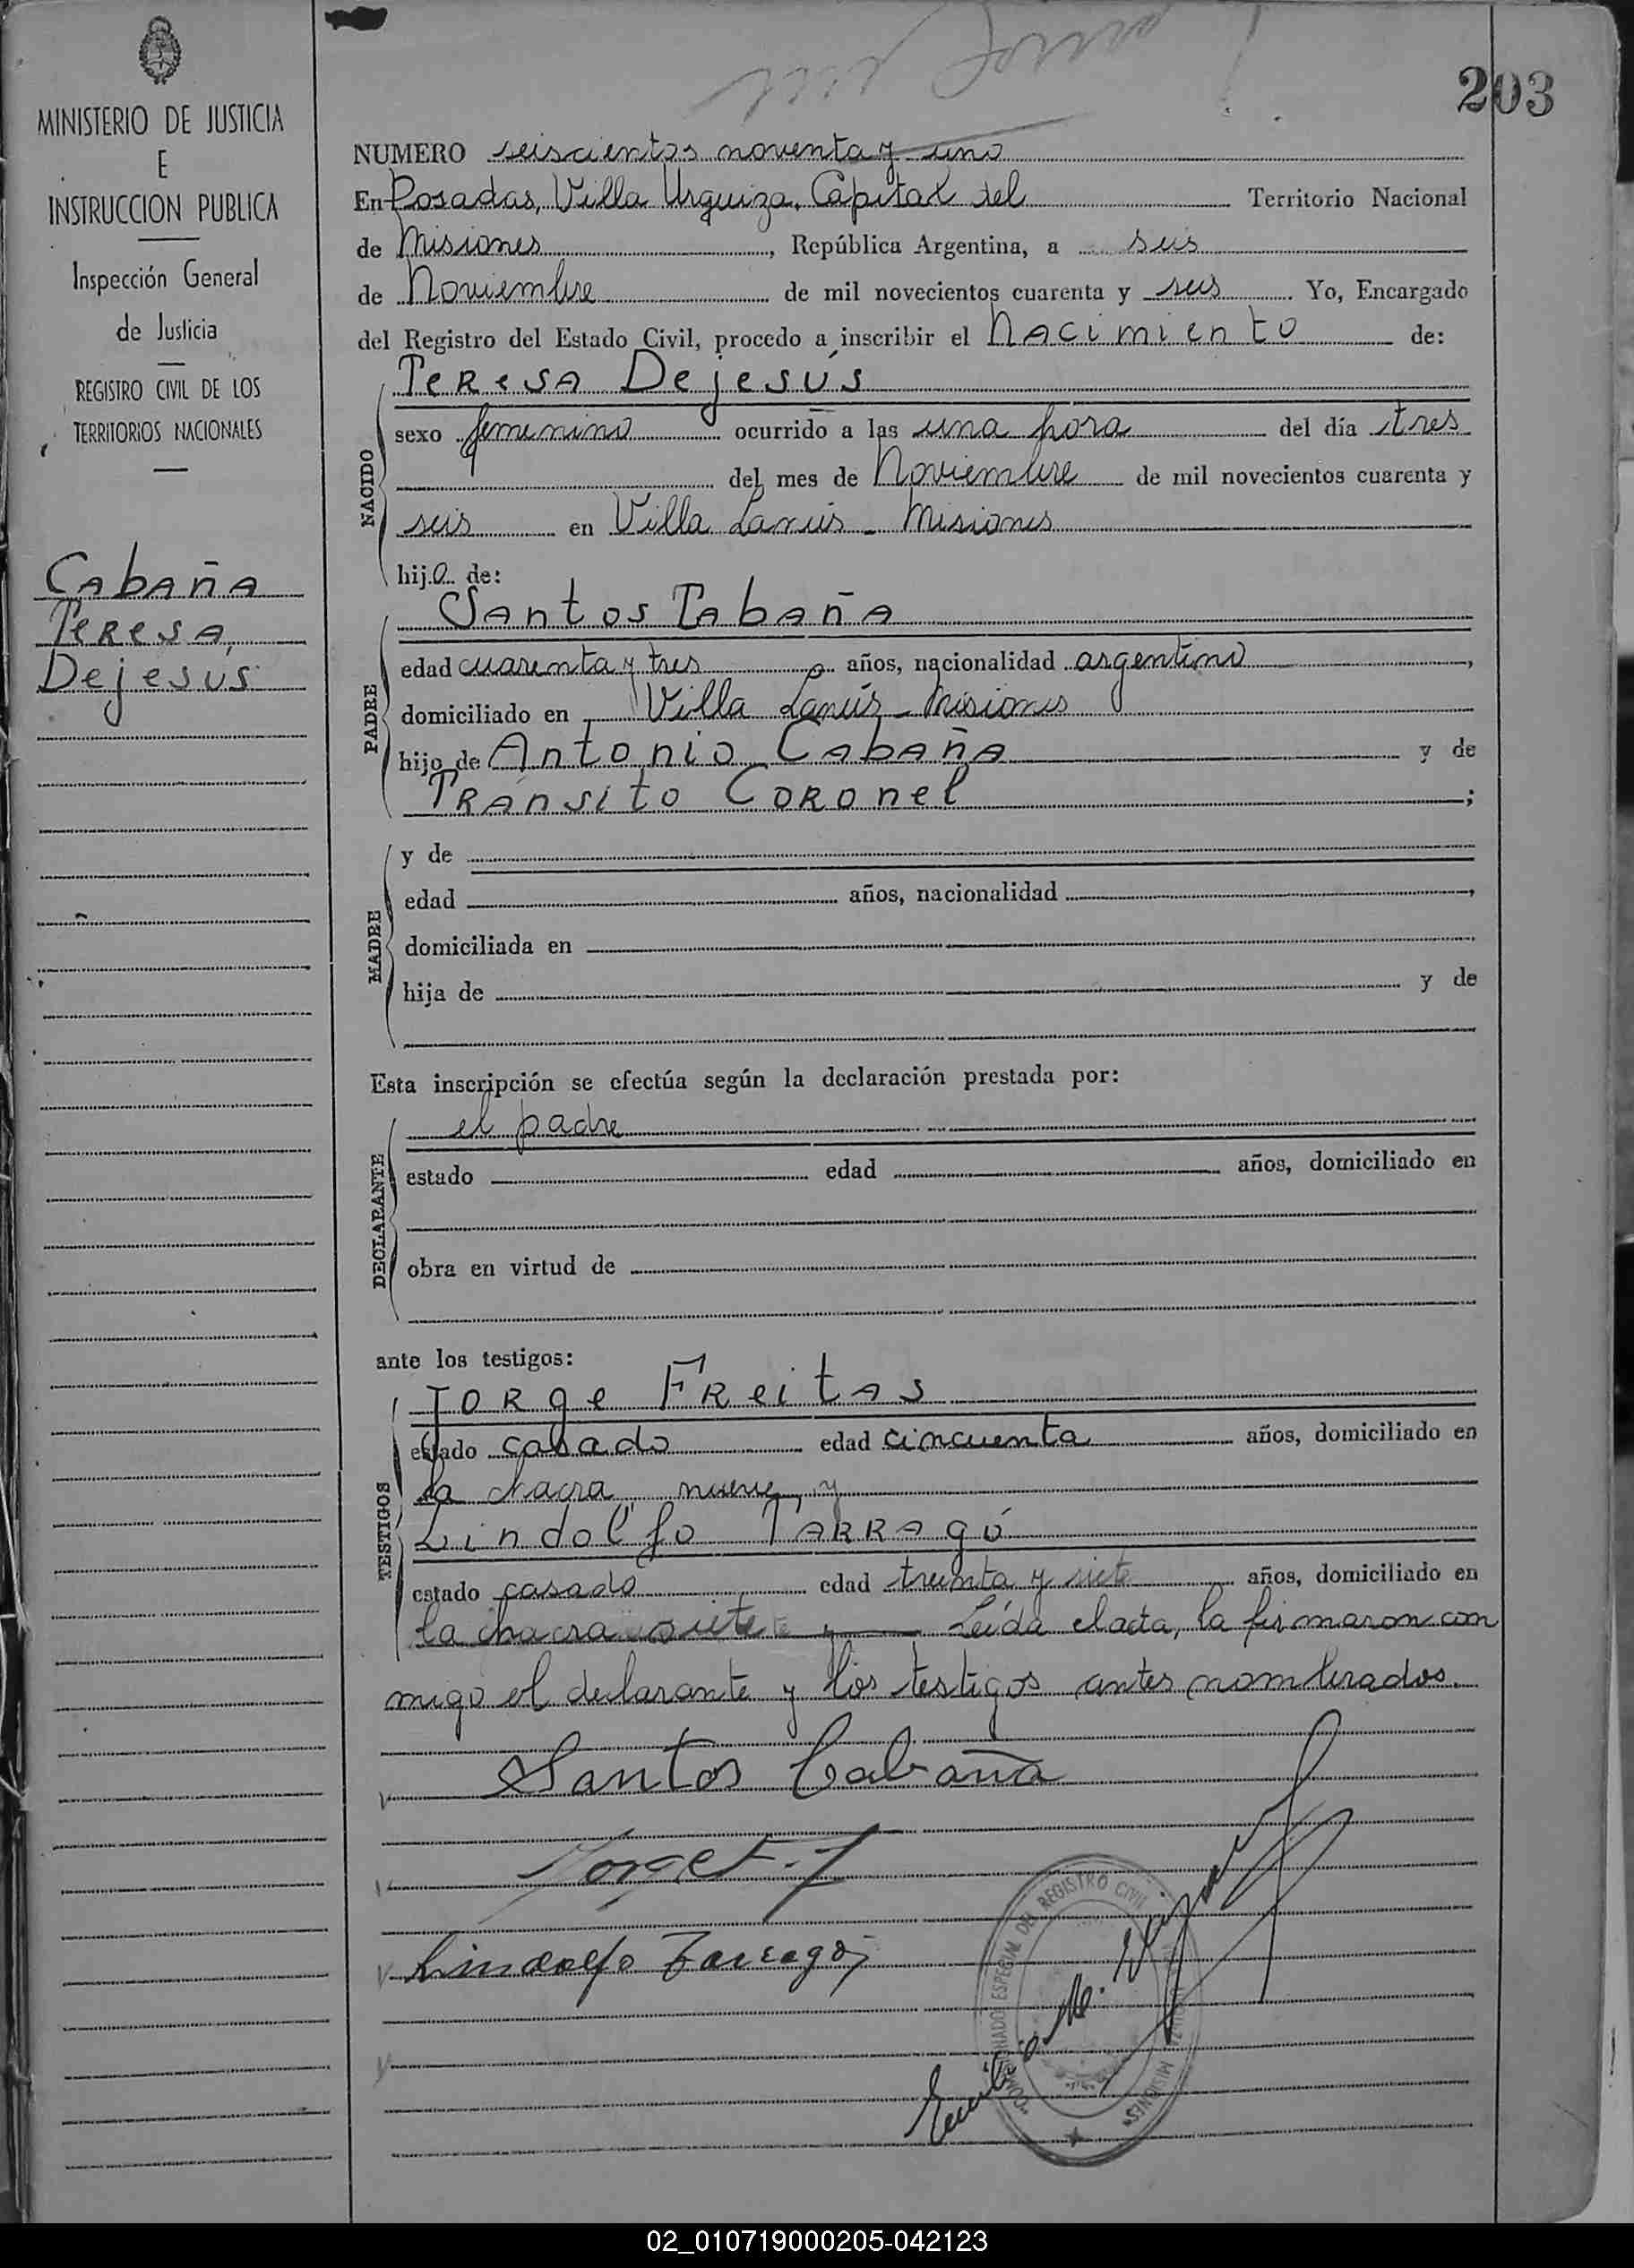 203
MINISTERIO DE JUSTICIA
E
INSTRUCCION PUBLICA
Inspección General
de Justicia
REGISTRO CIVIL DE LOS
TERRITORIOS NACIONALES
Cabaña
Teresa,
Dejesús
NUMERO seiscientos noventa y uno
En Posadas, Villa Urquiza, Capital del Territorio Nacional
de Misiones, República Argentina, a seis
de Noviembre de mil novecientos cuarenta y seis. Yo, Encargado
del Registro del Estado Civil, procedo a inscribir el Nacimiento de:
NACIDO
Teresa Dejesús
sexo femenino ocurrido a las una hora del día tres
del mes de Noviembre de mil novecientos cuarenta y
seis en Villa Lanús - Misiones
hija de:
PADRE
Santos Tabaña
edad cuarenta y tres años, nacionalidad argentino,
domiciliado en Villa Lanús - Misiones
hijo de Antonio Cabaña y de
Tránsito Coronel;
MADRE
y de
edad años, nacionalidad,
domiciliada en
hija de y de
Esta inscripción se efectúa según la declaración prestada por:
DECLARANTE
el padre
estado edad años, domiciliado en
obra en virtud de
ante los testigos:
TESTIGOS
Jorge Freitas
estado casado edad cincuenta años, domiciliado en
la chacra nueve, y
Lindolfo Tarragó
estado casado edad treinta y siete años, domiciliado en
la chacra siete Leída el acta, la firmaron con
migo el declarante y los testigos antes nombrados.
Santos Cabaña
Jorge F.
Lindolfo Tarragó
REGISTRO CIVIL
MISIONES
02_010719000205-042123